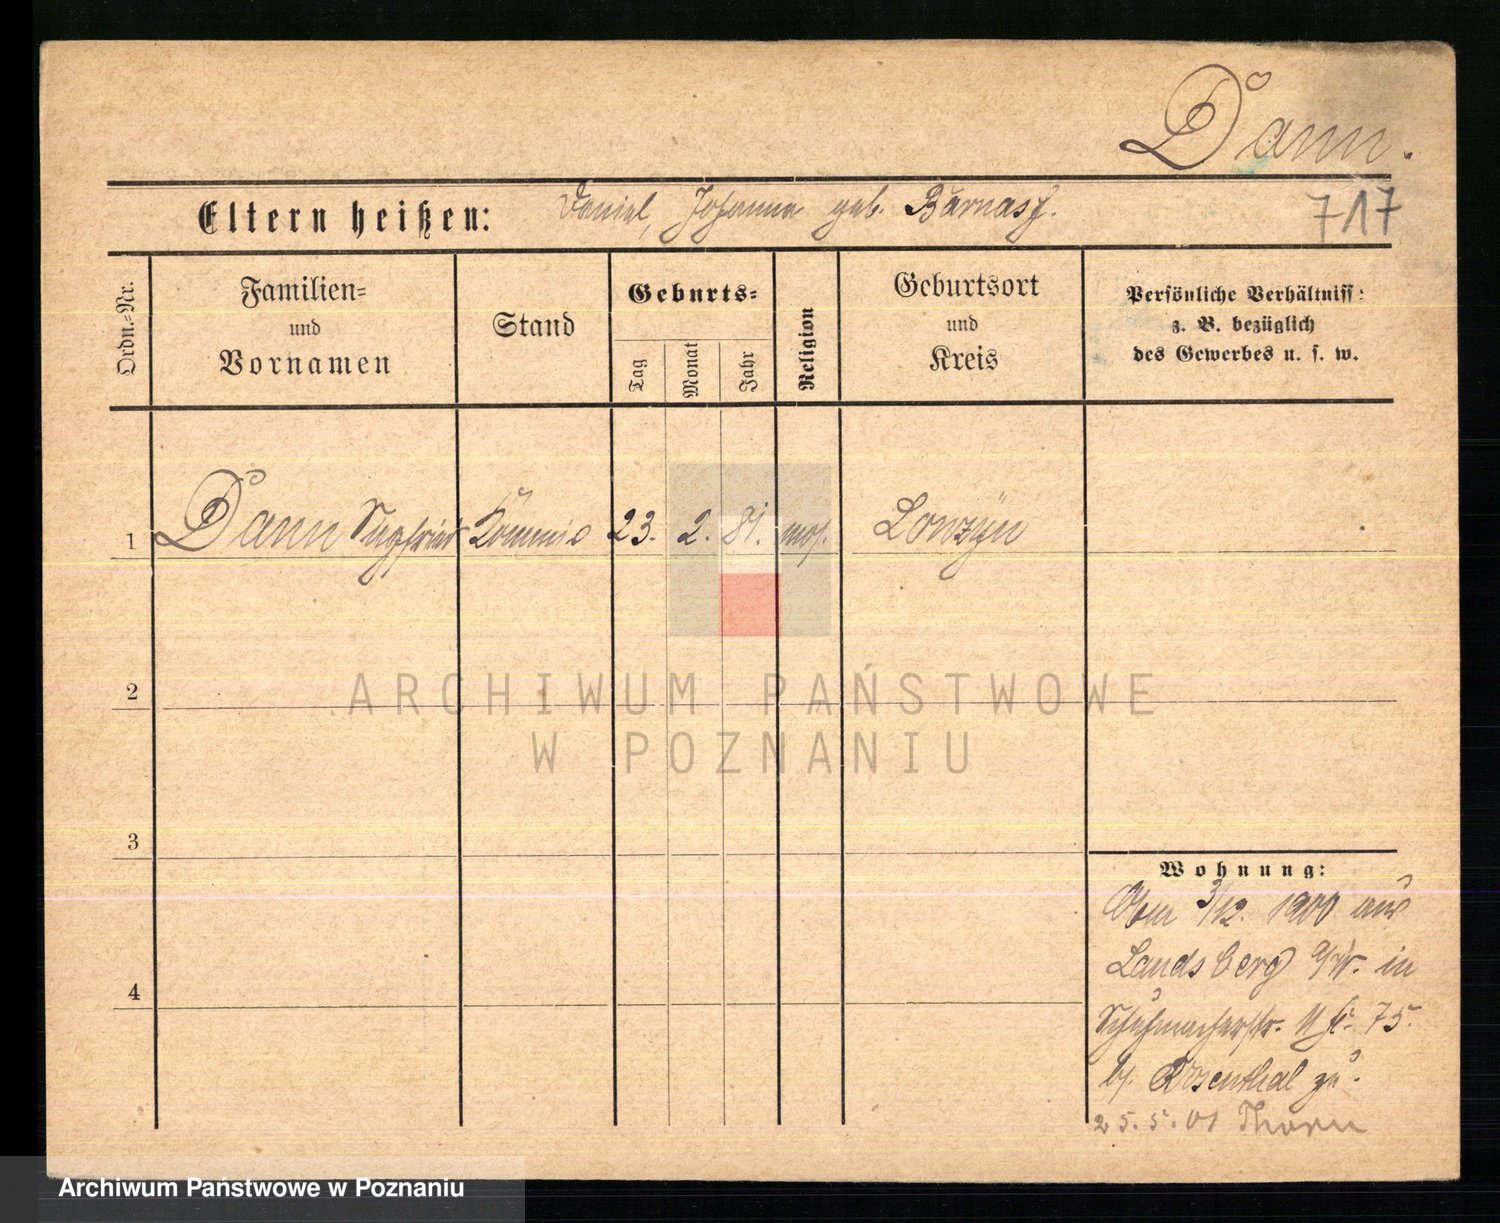 Dann.
Eltern heißen: Daniel, Johanna geb. Barnass.
717
Ordn.-Nr.
Familien-
und
Vornamen
Stand
Geburts-
Tag
Monat
Jahr
Religion
Geburtsort
und
Kreis
Persönliche Verhältniss:
z. B. bezüglich
des Gewerbes u. s. w.
1 Dann Siegfried Kommis 23. 2. 81. mos.
2
3
4
ARCHIWUM PAŃSTWOWE
W POZNANIU
Wohnung:
3/12. 1900 aus
Landsberg a/W. in
Schuhmacherstr. 75.
b/. Rosenthal zu.
25.5.01 Thorn
Archiwum Państwowe w Poznaniu